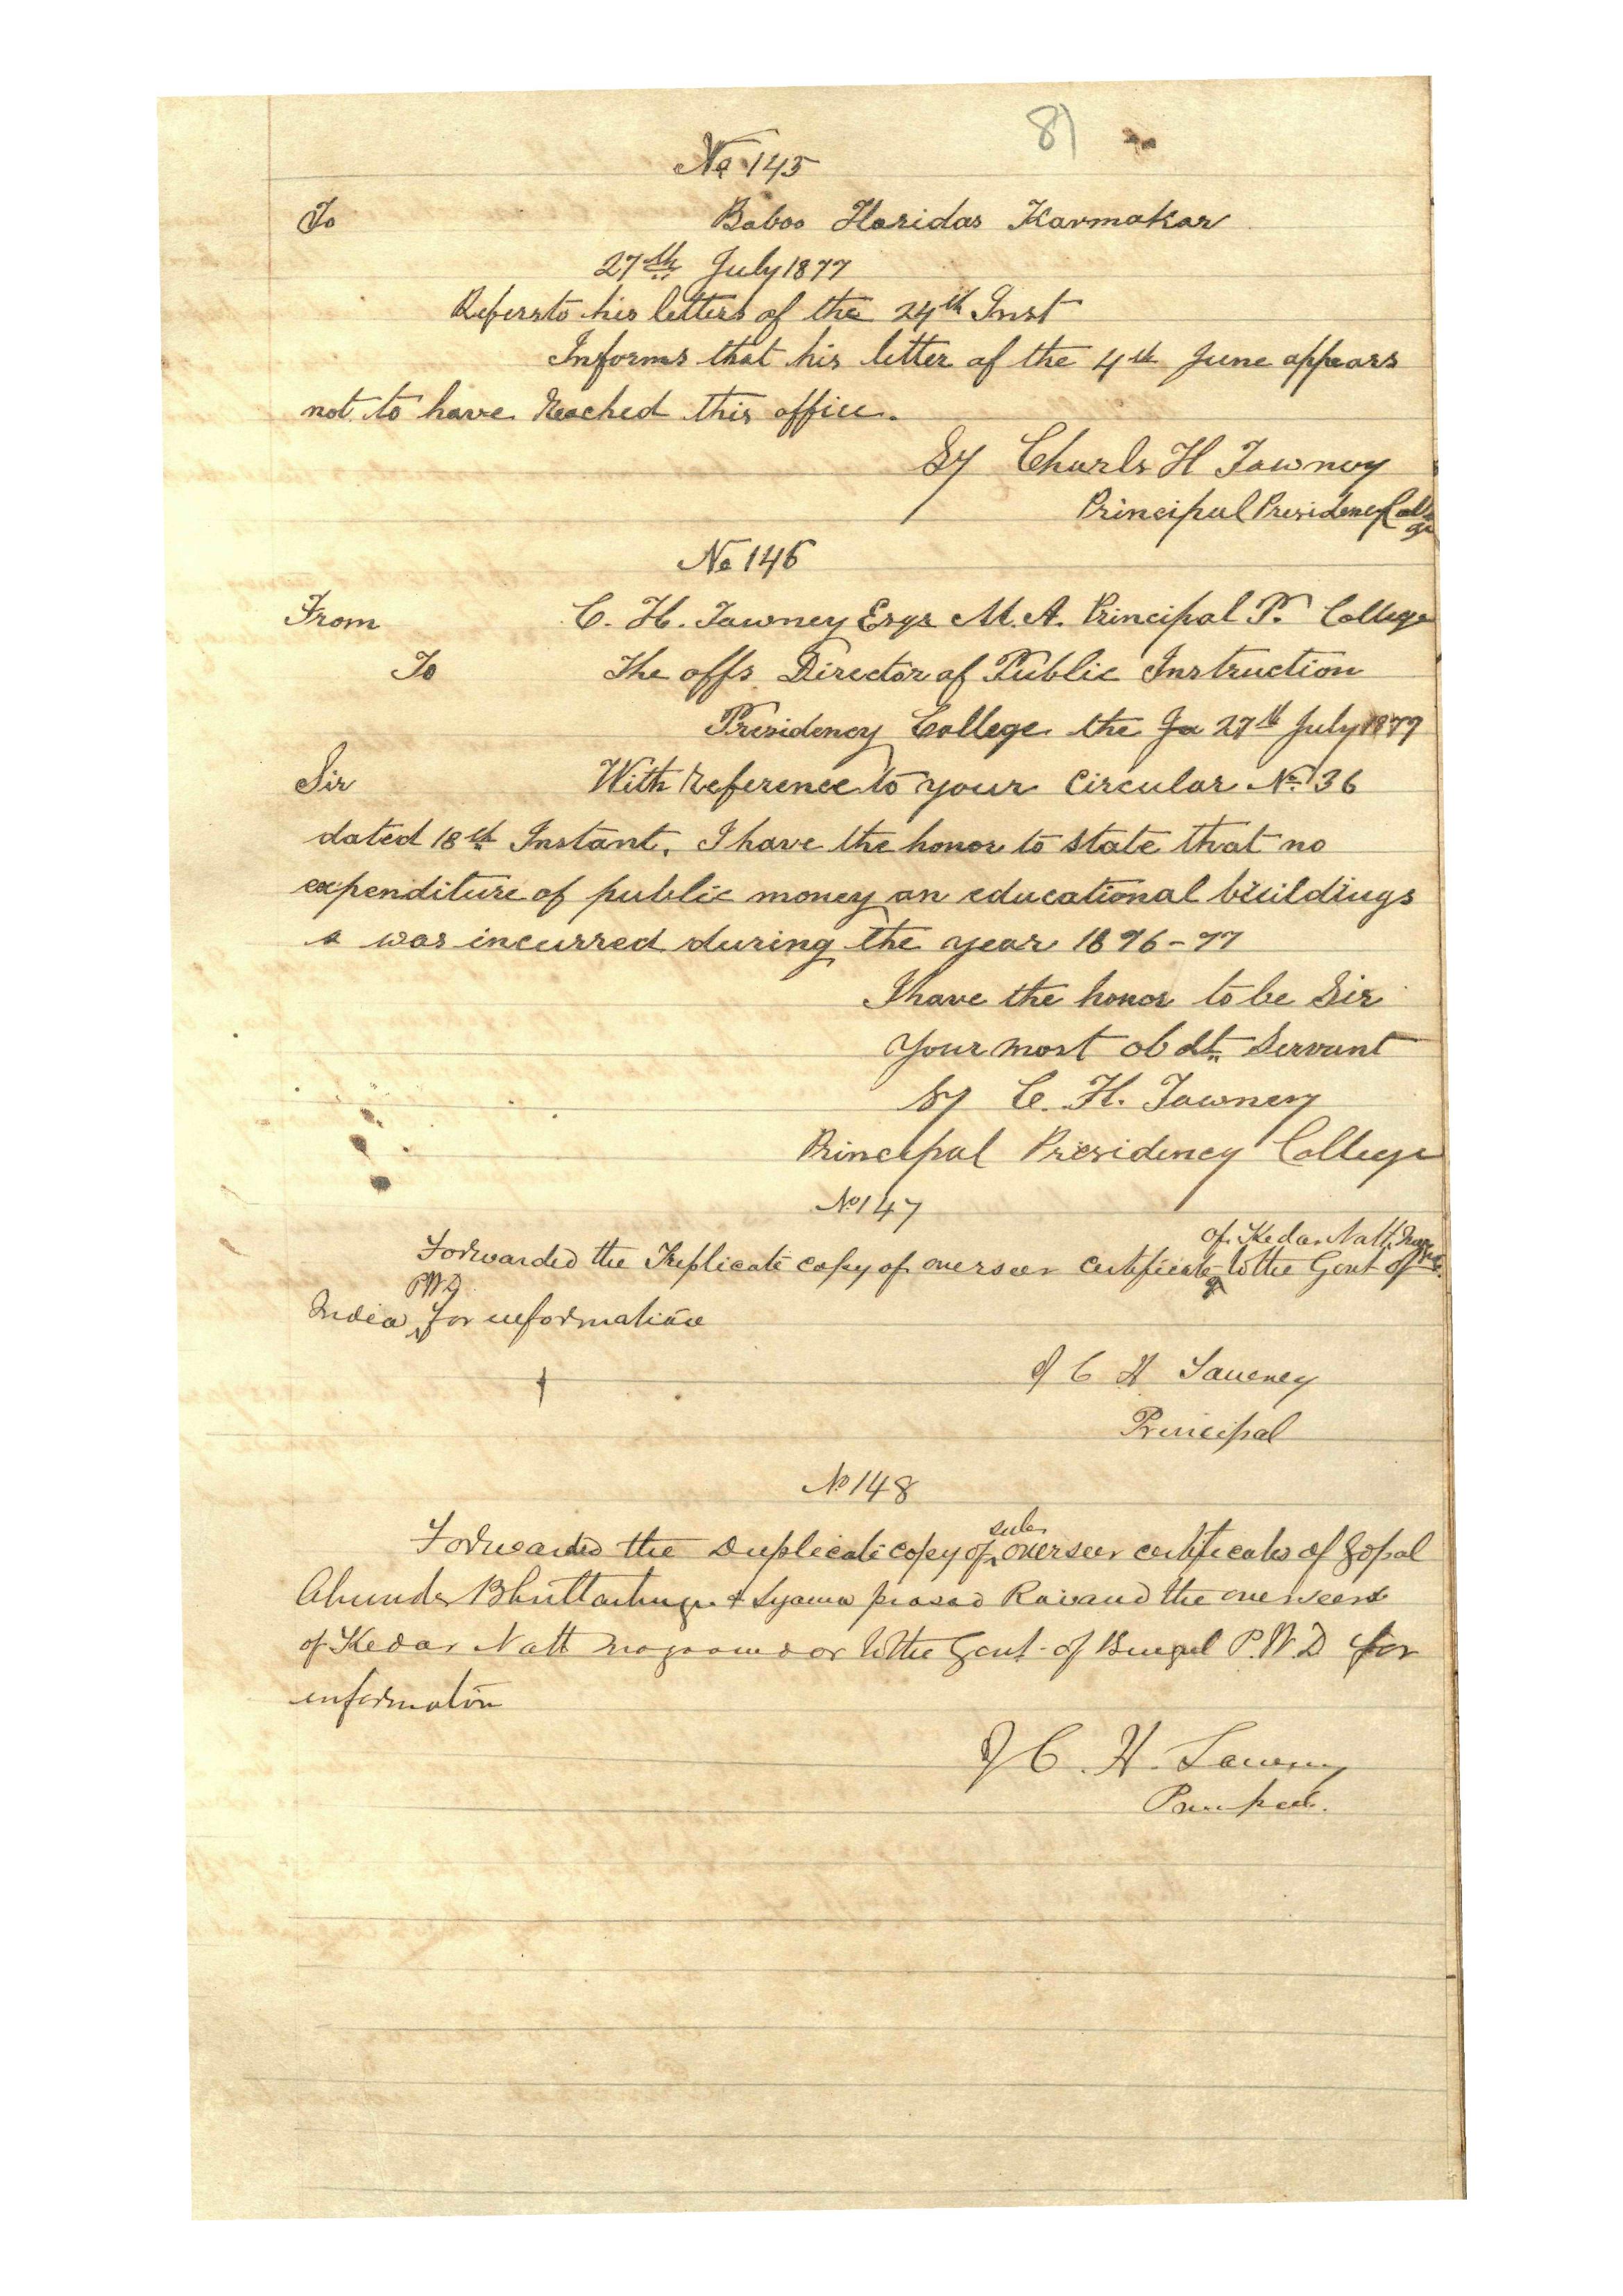 81
No 145
To Baboo Haridas Karmakar
27th July 1877
Refers to his letters of the 24th Inst
Informs that his letter of the 4th June appears
not to have reached this office.
Sy Charls H Tawney
Principal Presidency College
No 146
From C. H. Tawney Esqr M.A. Principal P. College
To The offg Director of Public Instruction
Presidency College the Ju 27th July 1877
Sir With reference to your Circular No 36
dated 18th Instant. I have the honor to state that no
expenditure of public money on educational buildings
a was incurred during the year 1876-77
I have the honor to be Sir
Your most obdt Servant
Sy C. H. Tawney
Principal Presidency College
No 147
of Kedar Natt
Forwarded the Triplicate copy of overseer certificate to the Govt of
PWD
India for information
C H Tawney
Principal
No 148
sub
Forwarded the Duplicate copy of overseer certificates of Gopal
Chunder Bhuttacharjee & Syama prosad Rai and the overseers
of Kedar Natt Mozoomdar to the Govt of Bengal P.W.D for
information
C. H. Tawney
Principal.